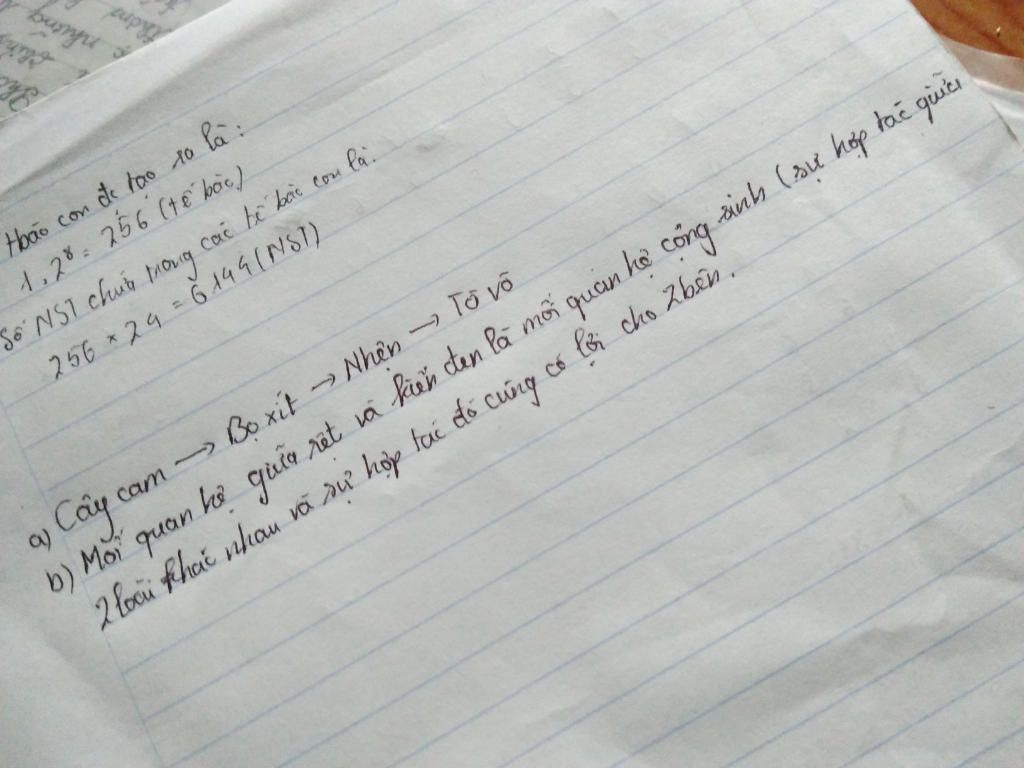 tế bào con đc tạo ra là:
1.2⁸ = 256 (tế bào)
Số NST chứa trong các tế bào con là:
256 × 24 = 6144 (NST)
a) Cây cam → Bọ xít → Nhện → Tò vò
b) Mối quan hệ giữa rệt và kiến đen là mối quan hệ cộng sinh (sự hợp tác giữa
2 loài khác nhau và sự hợp tác đó cùng có lợi cho 2 bên.